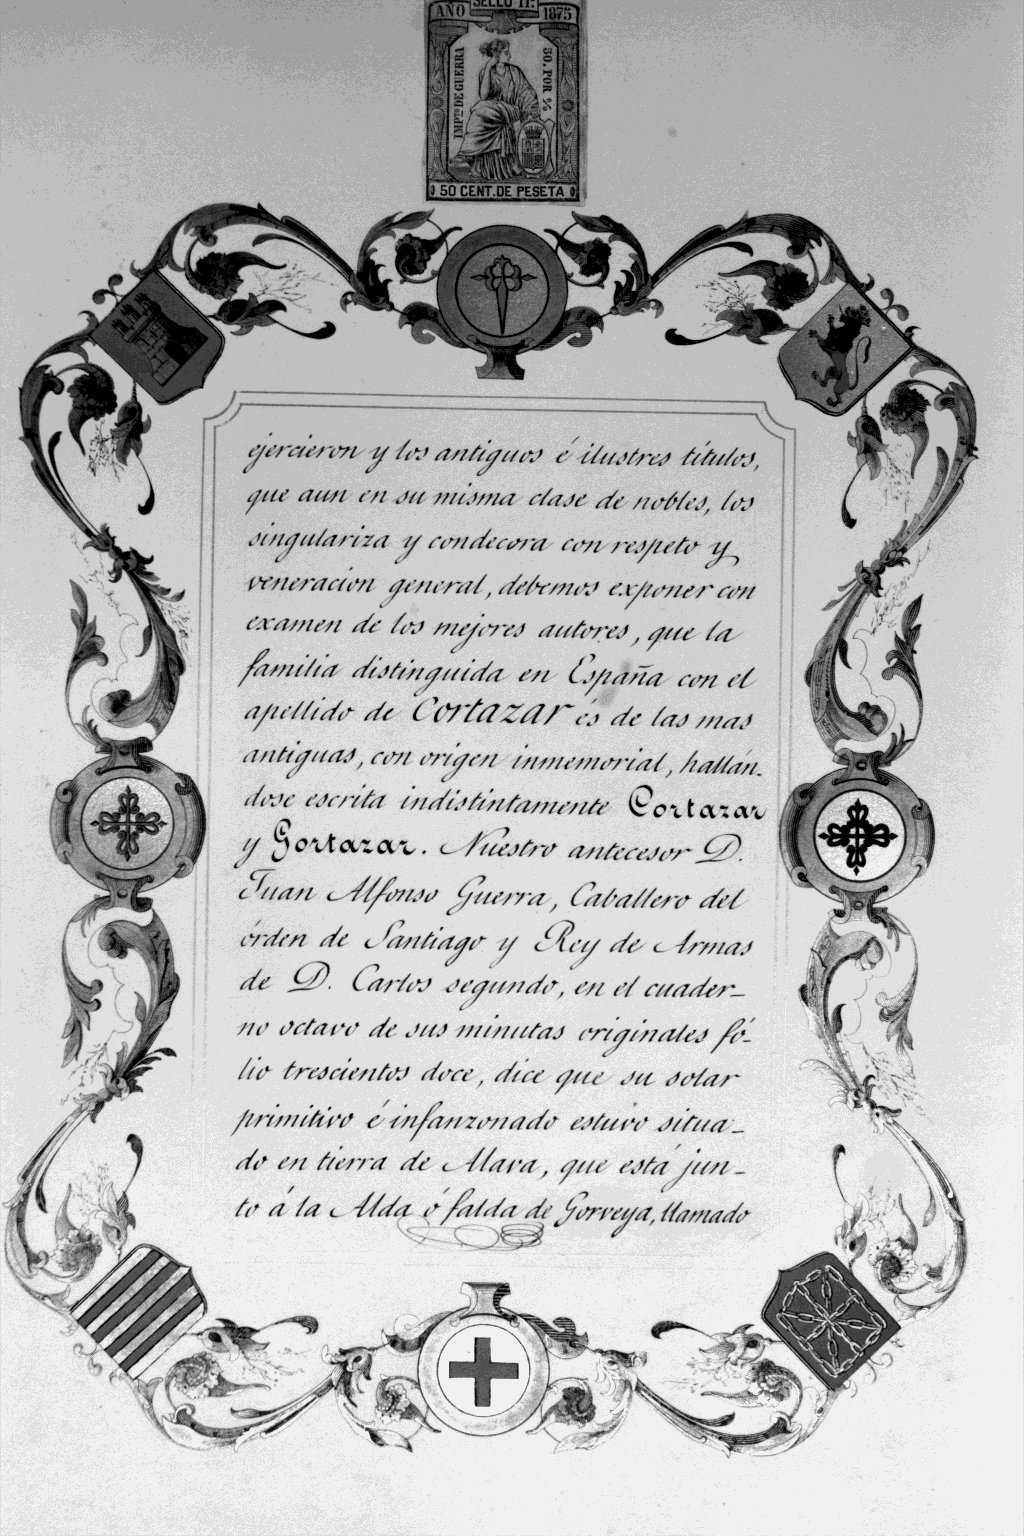 SELLO 11º
AÑO 1875
IMPTO DE GUERRA
50. POR %
50 CENT. DE PESETA
ejercieron y los antiguos é ilustres títulos,
que aun en su misma clase de nobles, los
singulariza y condecora con respeto y
veneracion general, debemos exponer con
examen de los mejores autores, que la
familia distinguida en España con el
apellido de Cortazar és de las mas
antiguas, con origen inmemorial, hallán-
dose escrita indistintamente Cortazar
y Gortazar. Nuestro antecesor D.
Juan Alfonso Guerra, Caballero del
órden de Santiago y Rey de Armas
de D. Carlos segundo, en el cuader-
no octavo de sus minutas originales fó-
lio trescientos doce, dice que su solar
primitivo é infanzonado estuvo situa-
do en tierra de Alava, que está jun-
to á la Alda ó falda de Gorveya, llamado